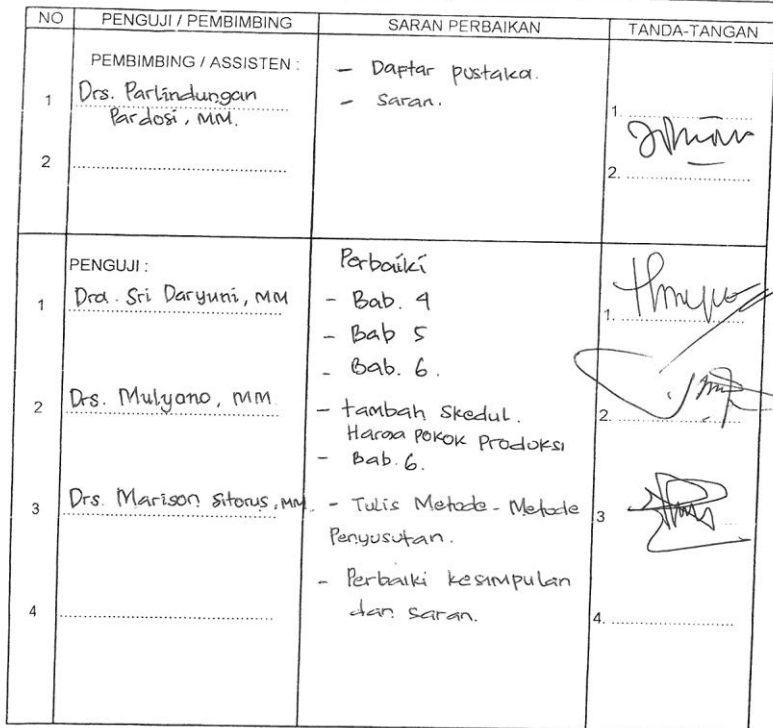 NO PENGUJI / PEMBIMBING SARAN PERBAIKAN TANDA-TANGAN
PEMBIMBING / ASSISTEN :
1 Drs. Parlindungan
Pardosi, MM.
2
- Daptar pustaka.
- Saran.
1.
2.
PENGUJI :
1 Dra. Sri Daryuni, MM
Perbaiki
- Bab. 4
- Bab 5
- Bab. 6.
1.
2 Drs. Mulyono, MM
- tambah skedul.
Harga Pokok Produksi
- Bab. 6.
2.
3 Drs. Marison Sitorus, MM.
- Tulis Metode-Metode
Penyusutan.
- Perbaiki kesimpulan
dan saran.
3
4
4.